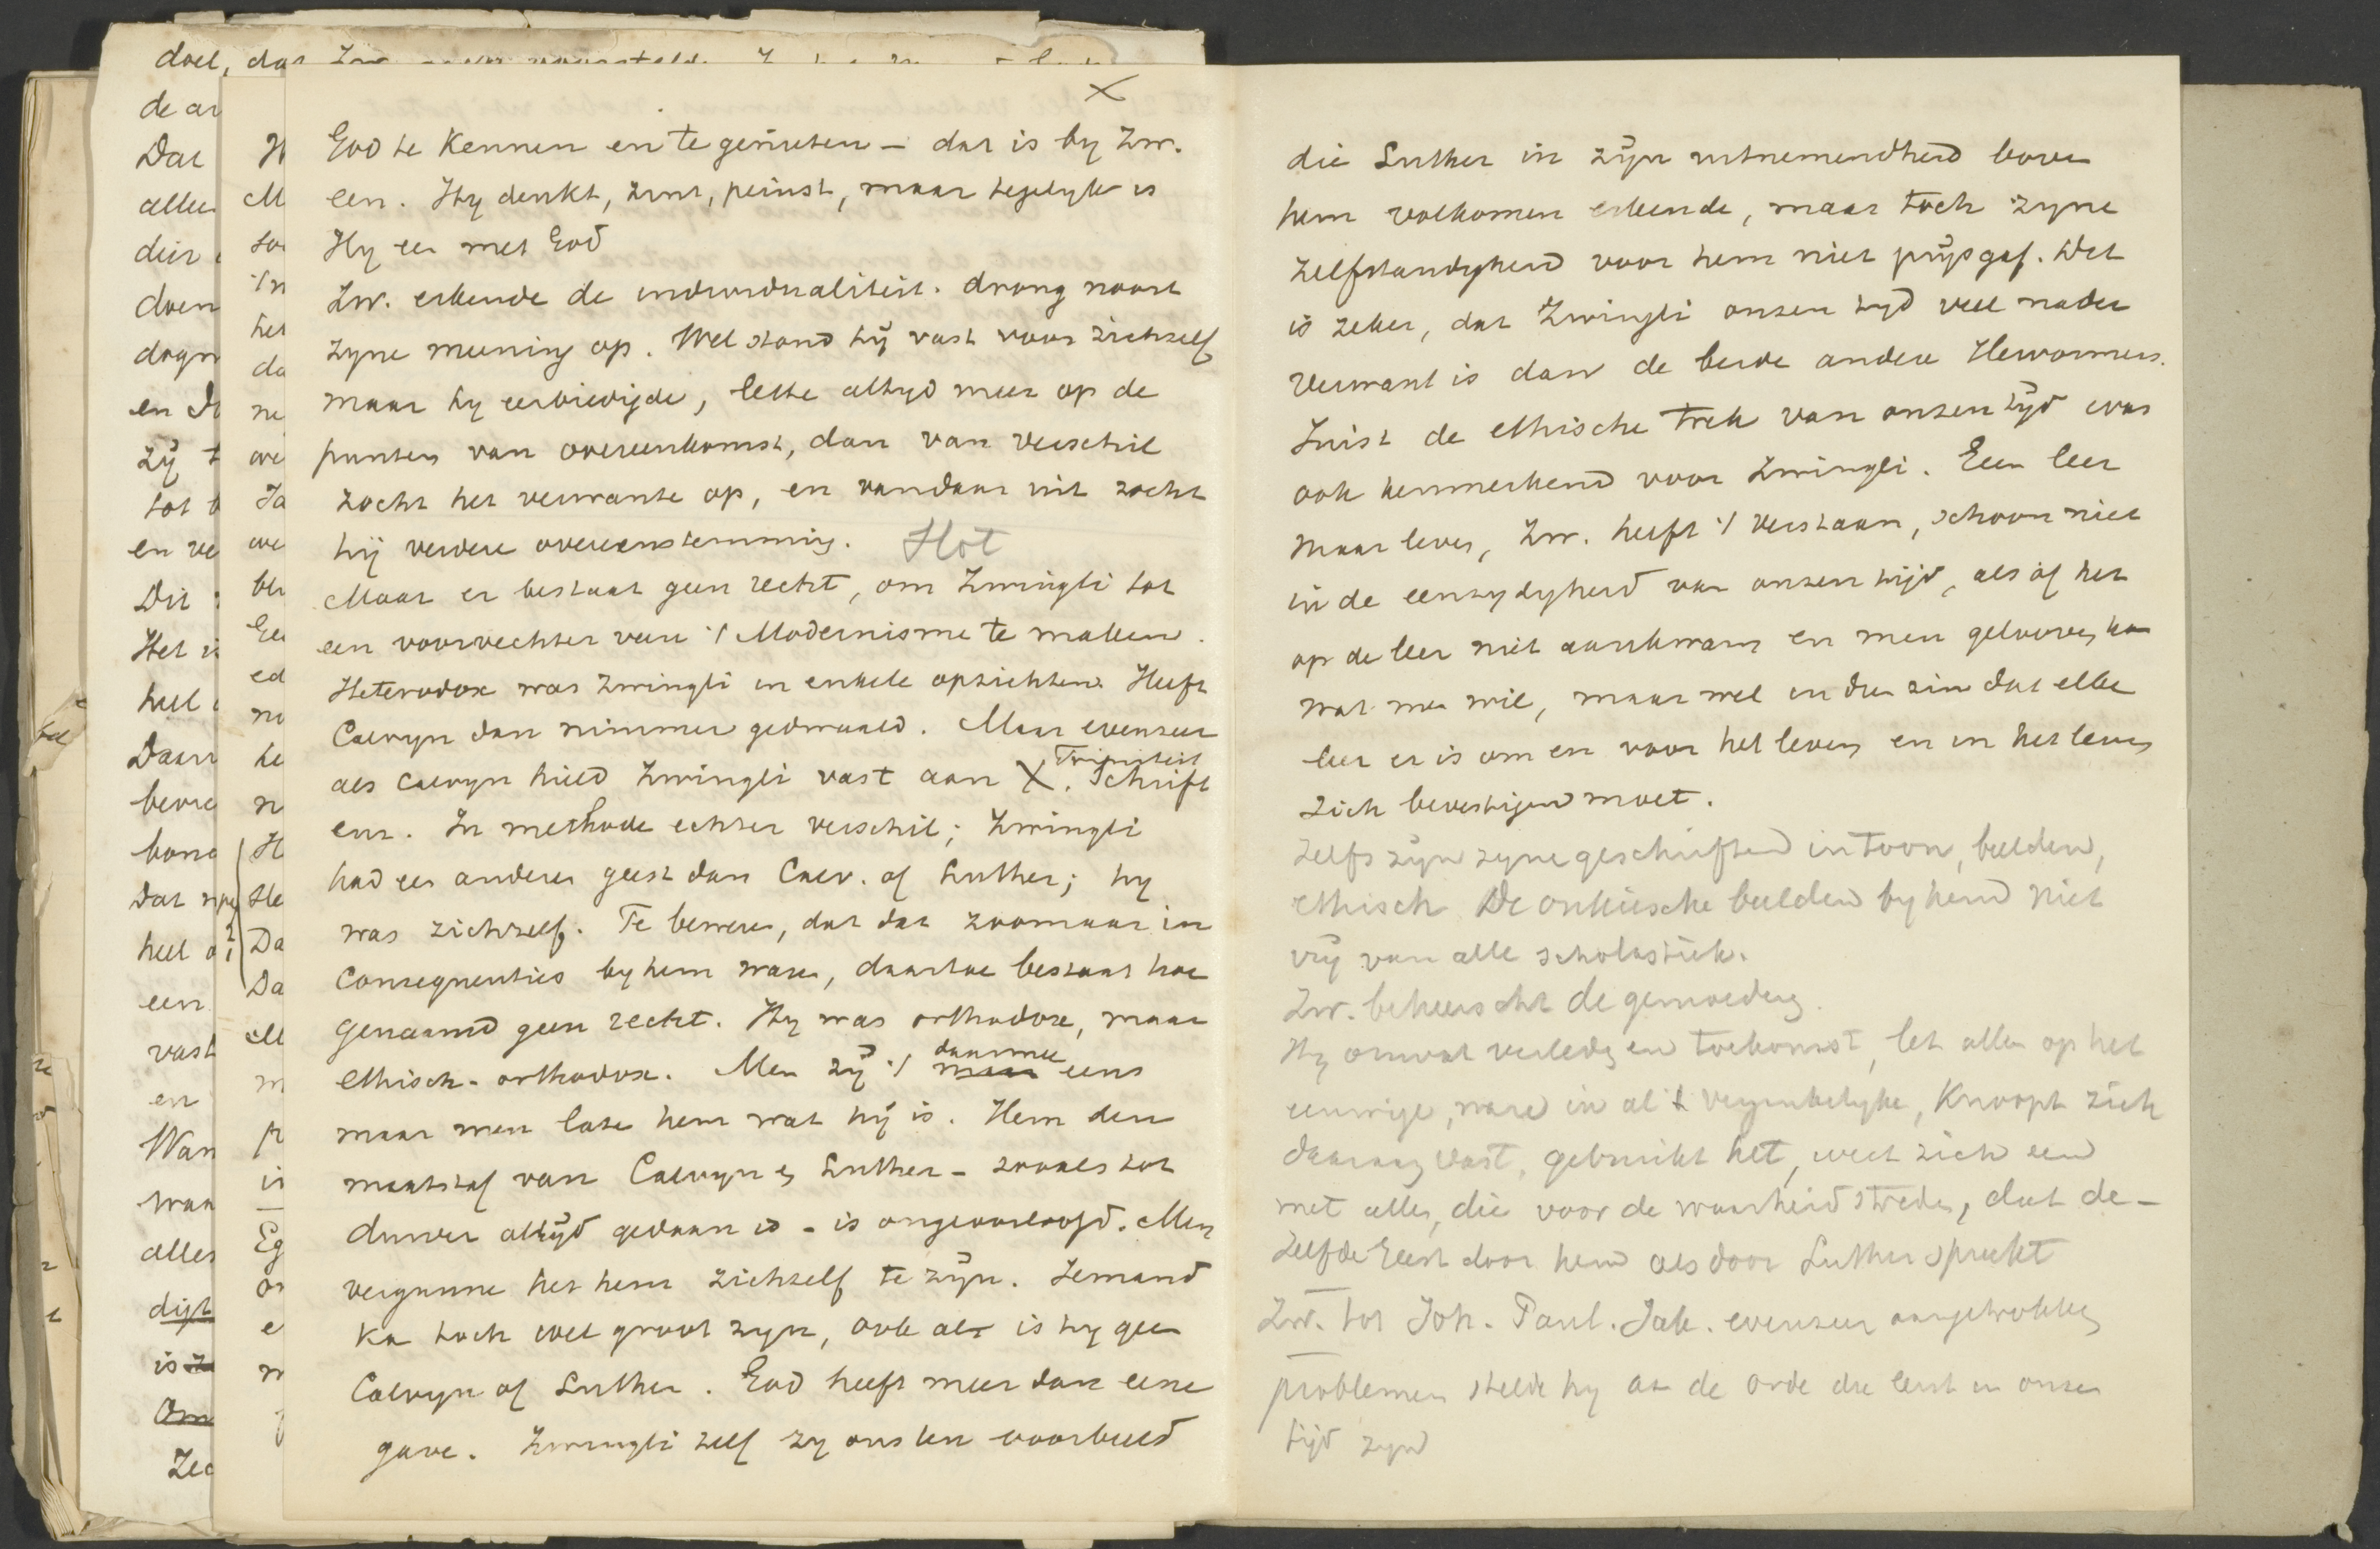 doel, dat Zw.
de ar
Dat
allee
dier
doen
dogm
en D
zij t
tot
en ve
Dit
Het i
heel
Daar
bevre
bond
Dat
heel a
een
vast
en
Wan
waa
alles
digt
is
Om
Zed
H
M
too
'/n
het
da
ne
we
Ja
we
bli
Ee
ed
no
he
n
H
He
Da
Da
M
m
p
is
Eg
or
e
m
X
God te kennen en te genieten – dat is by Zw.
een. Hy denkt, zint, peinst, maar tegelyk is
Hy een met God
Zw. erkende de individualiteit. drong nooit
zyne meening op. Wel stond hij vast voor zichzelf
maar hy eerbiedigde, lette altyd meer op de
punten van overeenkomst, dan van verschil
zocht het verwante op, en vandaar uit zocht
hij verdere overeenstemming. Hot
Maar er bestaat geen recht, om Zwingli tot
een voorvechter van 't Modernisme te maken.
Heterodox was Zwingli in enkele opzichten. Heeft
Calvyn dan nimmer gedwaald. Maar evenzeer
als Calvyn hield Zwingli vast aan X. Triniteit Schrift
enz. In methode echter verschil; Zwingli
had een anderen geest dan Calv. of Luther; hy
was zichzelf. Te beweren, dat dat zoomaar in
Consequenties by hem waren, daartoe bestaat hoe
genaamd geen recht. Hy was orthodox, maar
ethisch-orthodox. Men zij 't maar daarmee eens
maar men late hem wat hij is. Hem den
maatstaf van Calvyn en Luther – zooals tot
dusver altijd gedaan is – is ongeoorloofd. Men
vergunne het hem zichzelf te zijn. Iemand
kan toch wel groot zyn, ook al is hy geen
Calvyn of Luther. God heeft meer dan eene
gave. Zwingli zelf zy ons ten voorbeeld
die Luther in zijn uitnemendheid boven
hem volkomen erkende, maar toch zyne
zelfstandigheid voor hem niet prijsgaf. Dit
is zeker, dat Zwingli onzen tyd veel nader
verwant is dan de beide andere Hervormers.
Juist de ethische trek van onzen tijd was
ook kenmerkend voor Zwingli. Geen leer
maar leven, Zw. heeft 't verstaan, schoon niet
in de eenzydigheid van onzen tijd, als of het
op de leer niet aankwam en men gelooven kan
wat men wil, maar wel in dien zin dat elke
leer er is om en voor het leven en in het leven
zich bevestigen moet.
Zelfs zijn zyne geschriften in toon, beelden,
ethisch De onkiesche beelden by hem niet
vrij van alle scholastiek.
Zw. beheerscht de gemoederen.
Hy omvat verleden en toekomst, let alleen op het
eeuwige, ware in al 't vergankelyke, Knoopt zich
daaraan vast, gebruikt het, weet zich een
met allen, die voor de waarheid streden, dat de-
zelfde Geest door hem als door Luther spreekt
Zw. tot Joh. Paul. Jak. evenzeer aangetrokken
problemen stelde hy aan de orde die eerst in onzen
tijd zyn